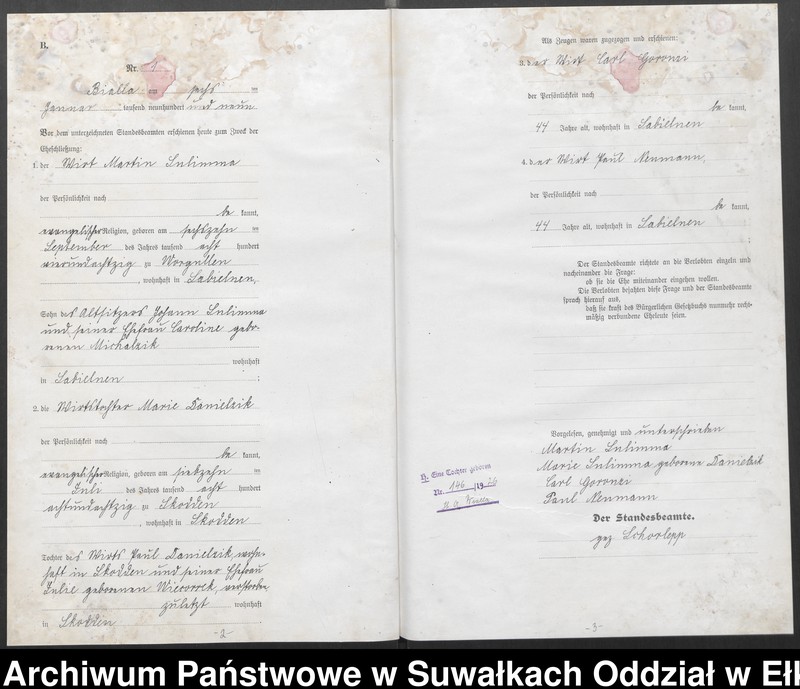 B.
Nr. 1
Bialla am sechs ten
Januar tausend neunhundert und neun
Vor dem unterzeichneten Standesbeamten erschienen heute zum Zweck der
Eheschließung:
1. der Wirt Martin Sulimma
der Persönlichkeit nach
be kannt,
evangelischer Religion, geboren am sechszehn ten
September des Jahres tausend acht hundert
vierundachtzig zu Worgullen
, wohnhaft in Sabielnen,
Sohn des Altsitzers Johann Sulimma
und seiner Ehefrau Caroline gebo-
renen Michalzik
wohnhaft
in Sabielnen ;
2. die Wirtstochter Marie Danielzik
der Persönlichkeit nach
be kannt,
evangelischer Religion, geboren am siebzehn ten
Juli des Jahres tausend acht hundert
achtundachtzig zu Skodden
, wohnhaft in Skodden
Tochter des Wirts Paul Danielzik, wohn-
haft in Skodden und seiner Ehefrau
Julie geborenen Wieczorrek, verstorben,
zuletzt wohnhaft
in Skodden .
-2-
Als Zeugen waren zugezogen und erschienen:
3. der Wirt Carl Goronzi
der Persönlichkeit nach
be kannt,
44 Jahre alt, wohnhaft in Sabielnen
4. der Wirt Paul Neumann,
der Persönlichkeit nach
be kannt,
44 Jahre alt, wohnhaft in Sabielnen
;
Der Standesbeamte richtete an die Verlobten einzeln und
nacheinander die Frage:
ob sie die Ehe miteinander eingehen wollen.
Die Verlobten bejahten diese Frage und der Standesbeamte
sprach hierauf aus,
daß sie kraft des Bürgerlichen Gesetzbuchs nunmehr recht-
mäßig verbundene Eheleute seien.
Vorgelesen, genehmigt und unterschrieben
Martin Sulimma
Marie Sulimma geborene Danielzik
Carl Goronzi
Paul Neumann
Der Standesbeamte.
gez Schorlepp
Eine Tochter geboren
Nr. 146 /19
-3-
Archiwum Państwowe w Suwałkach Oddział w Ełk